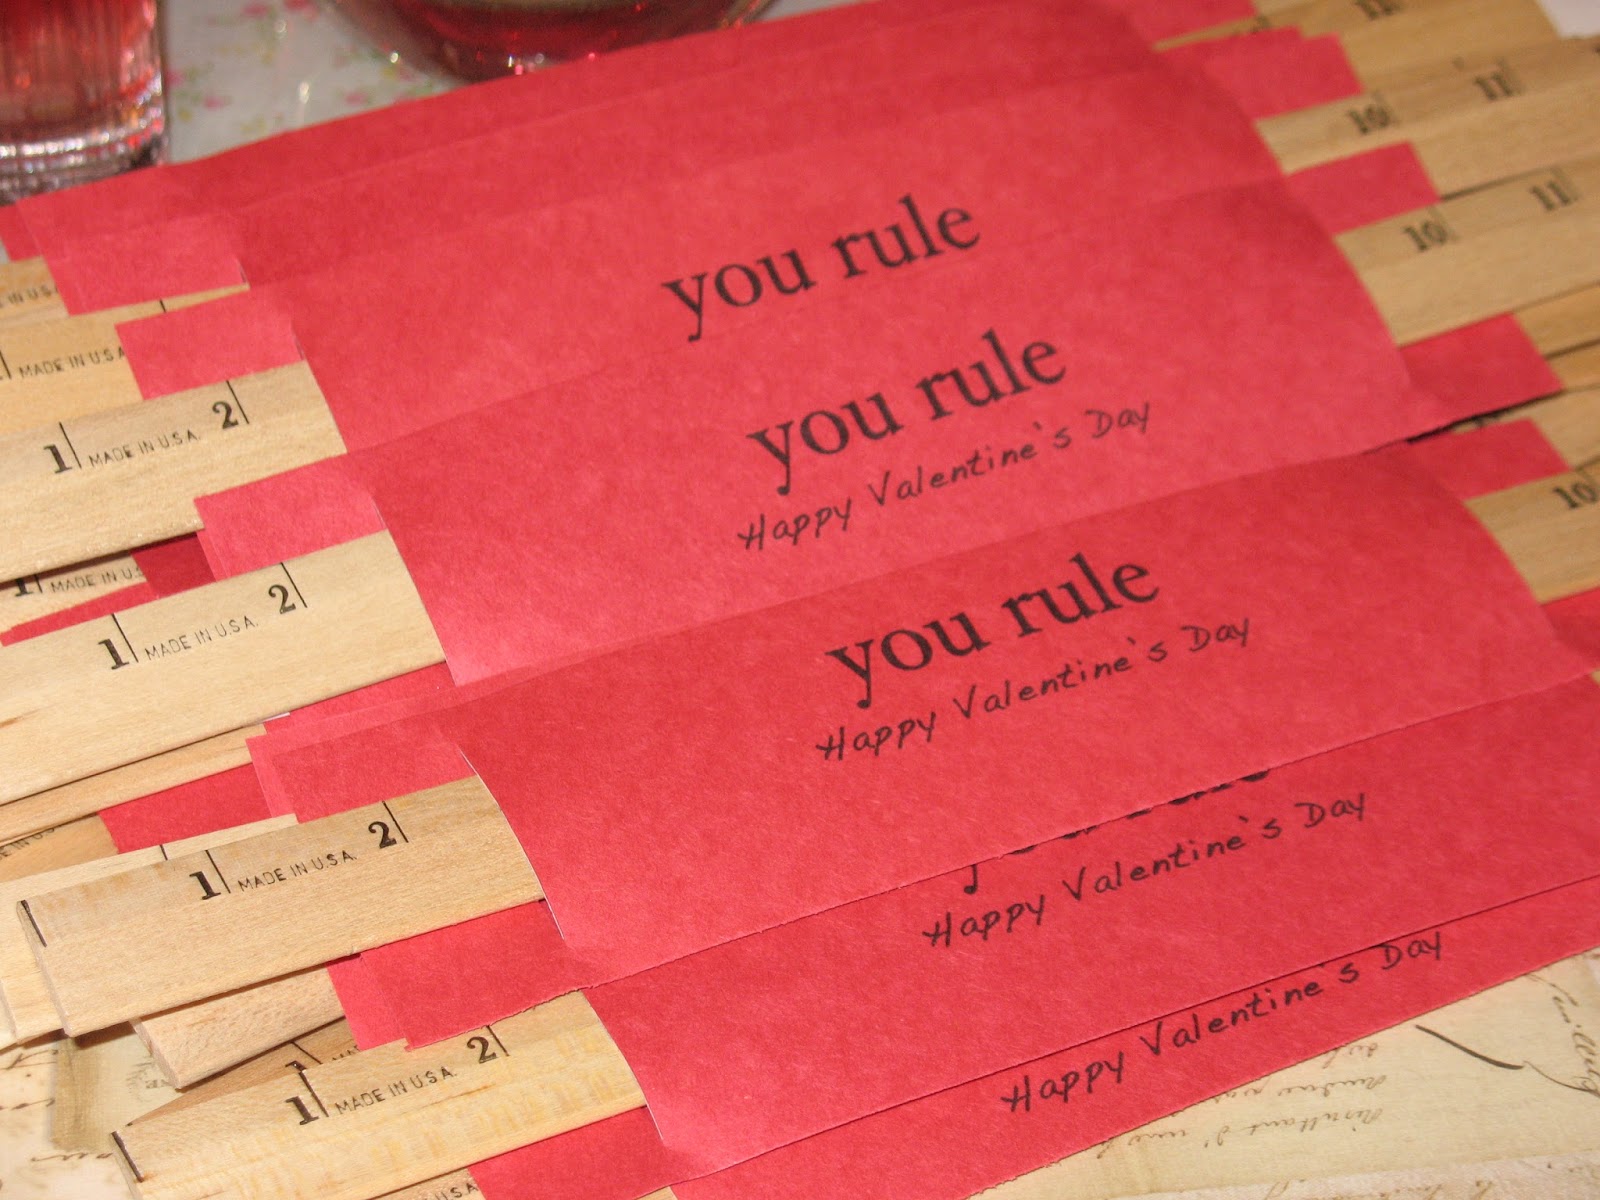 11
10
11
10
11
you rule
MADE IN U.S.A.
1 MADE IN U.S.A. 2
you rule
Happy Valentine's Day
1 MADE IN U.S
1 MADE IN U.S.A. 2
10
you rule
Happy Valentine's Day
1 MADE IN U.S.A. 2
Happy Valentine's Day
1 MADE IN U.S.A. 2
Happy Valentine's Day
U.S.A.